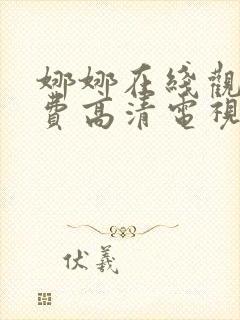 娜娜在綫觀
費高清電視
伏羲